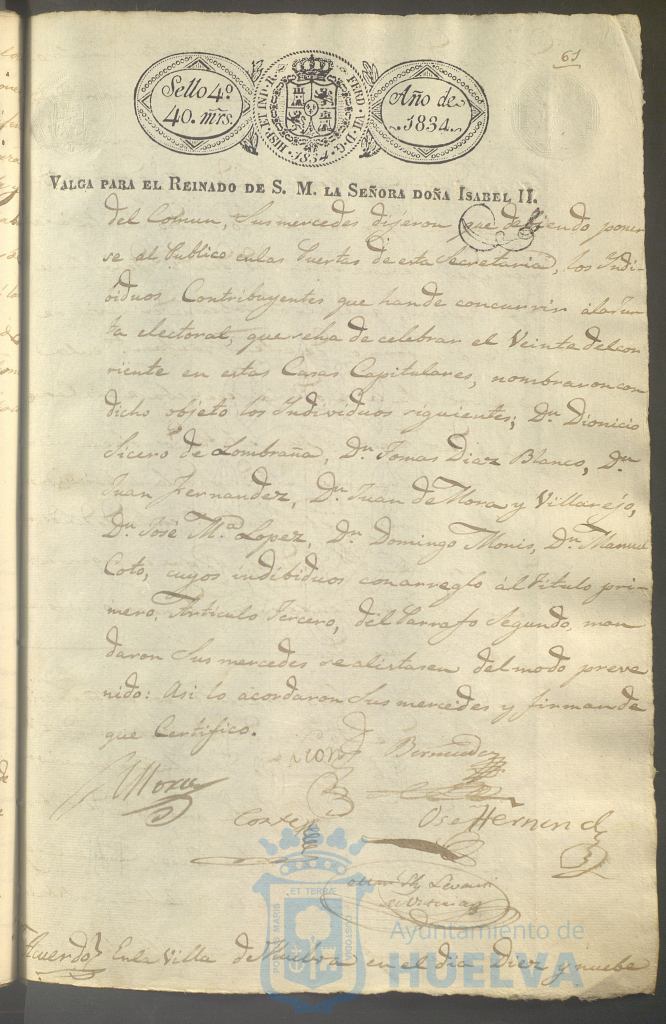 61
Sello 4º
40. mrs.
HISP. ET IND. R. FERD. VII. D. G. 1834
Año de
1834.
VALGA PARA EL REINADO DE S. M. LA SEÑORA DOÑA ISABEL II.
del Comun, Sus mercedes dijeron que debiendo poner
se al Publico enlas Puertas de esta Secretaria, los Indi-
biduos Contribuyentes que hande concurrir ala Jun
ta electoral, que seha de celebrar el Veinte delcor
riente en estas Casas Capitulares, nombraron con
dicho objeto los Individuos siguientes; Dn. Dionicio
Sicero de Lombraña, Dn. Tomas Diaz Blanco, Dn
Juan Fernandez, Dn. Juan de Mora y Villarejo,
Dn. José Ma. Lopez, Dn. Domingo Monis, Dn. Manuel
Coto, cuyos indibiduos conarreglo al titulo pri-
mero, Articulo Tercero, del Parrafo Segundo, man
daron Sus mercedes se alistasen del modo preve
nido: Asi lo acordaron Sus mercedes y firman de
que Certifico.
Bermudez
Mora
Hernand
Acuerdo} Enla Villa de Huelva en el dia Diez y nuebe
POR TUS MARIS ET TERRÆ CUSTODIA
Ayuntamiento de
HUELVA